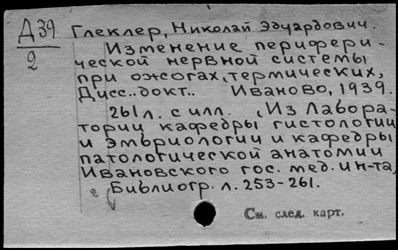 Д 39
2
Глеклер, Николай Эдуардович.
Изменение перифери-
ческой нервной системы
при ожогах, термических,
Дисс..докт.. Иваново, 1939.
261 л. с илл. , Из Лабора-
тории кафедры гистологии
и эмбриологии и кафедры
патологической анатомии
Ивановского гос. мед. ин-та,
Библиогр. л. 253-261.
См. след. карт.